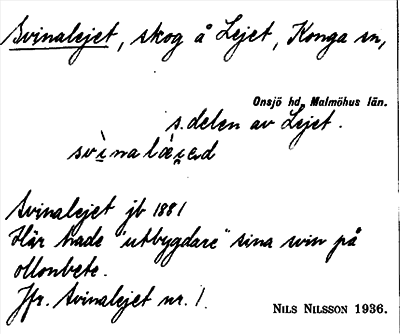 Svinalejet, skog å Lejet, Konga sn,
Onsjö hd, Malmöhus län.
s. delen av Lejet.
Svinalejet jb 1881
Här hade "utbygdare" sina svin på
ollonbete.
Jfr. Svinalejet nr. 1.
NILS NILSSON 1936.